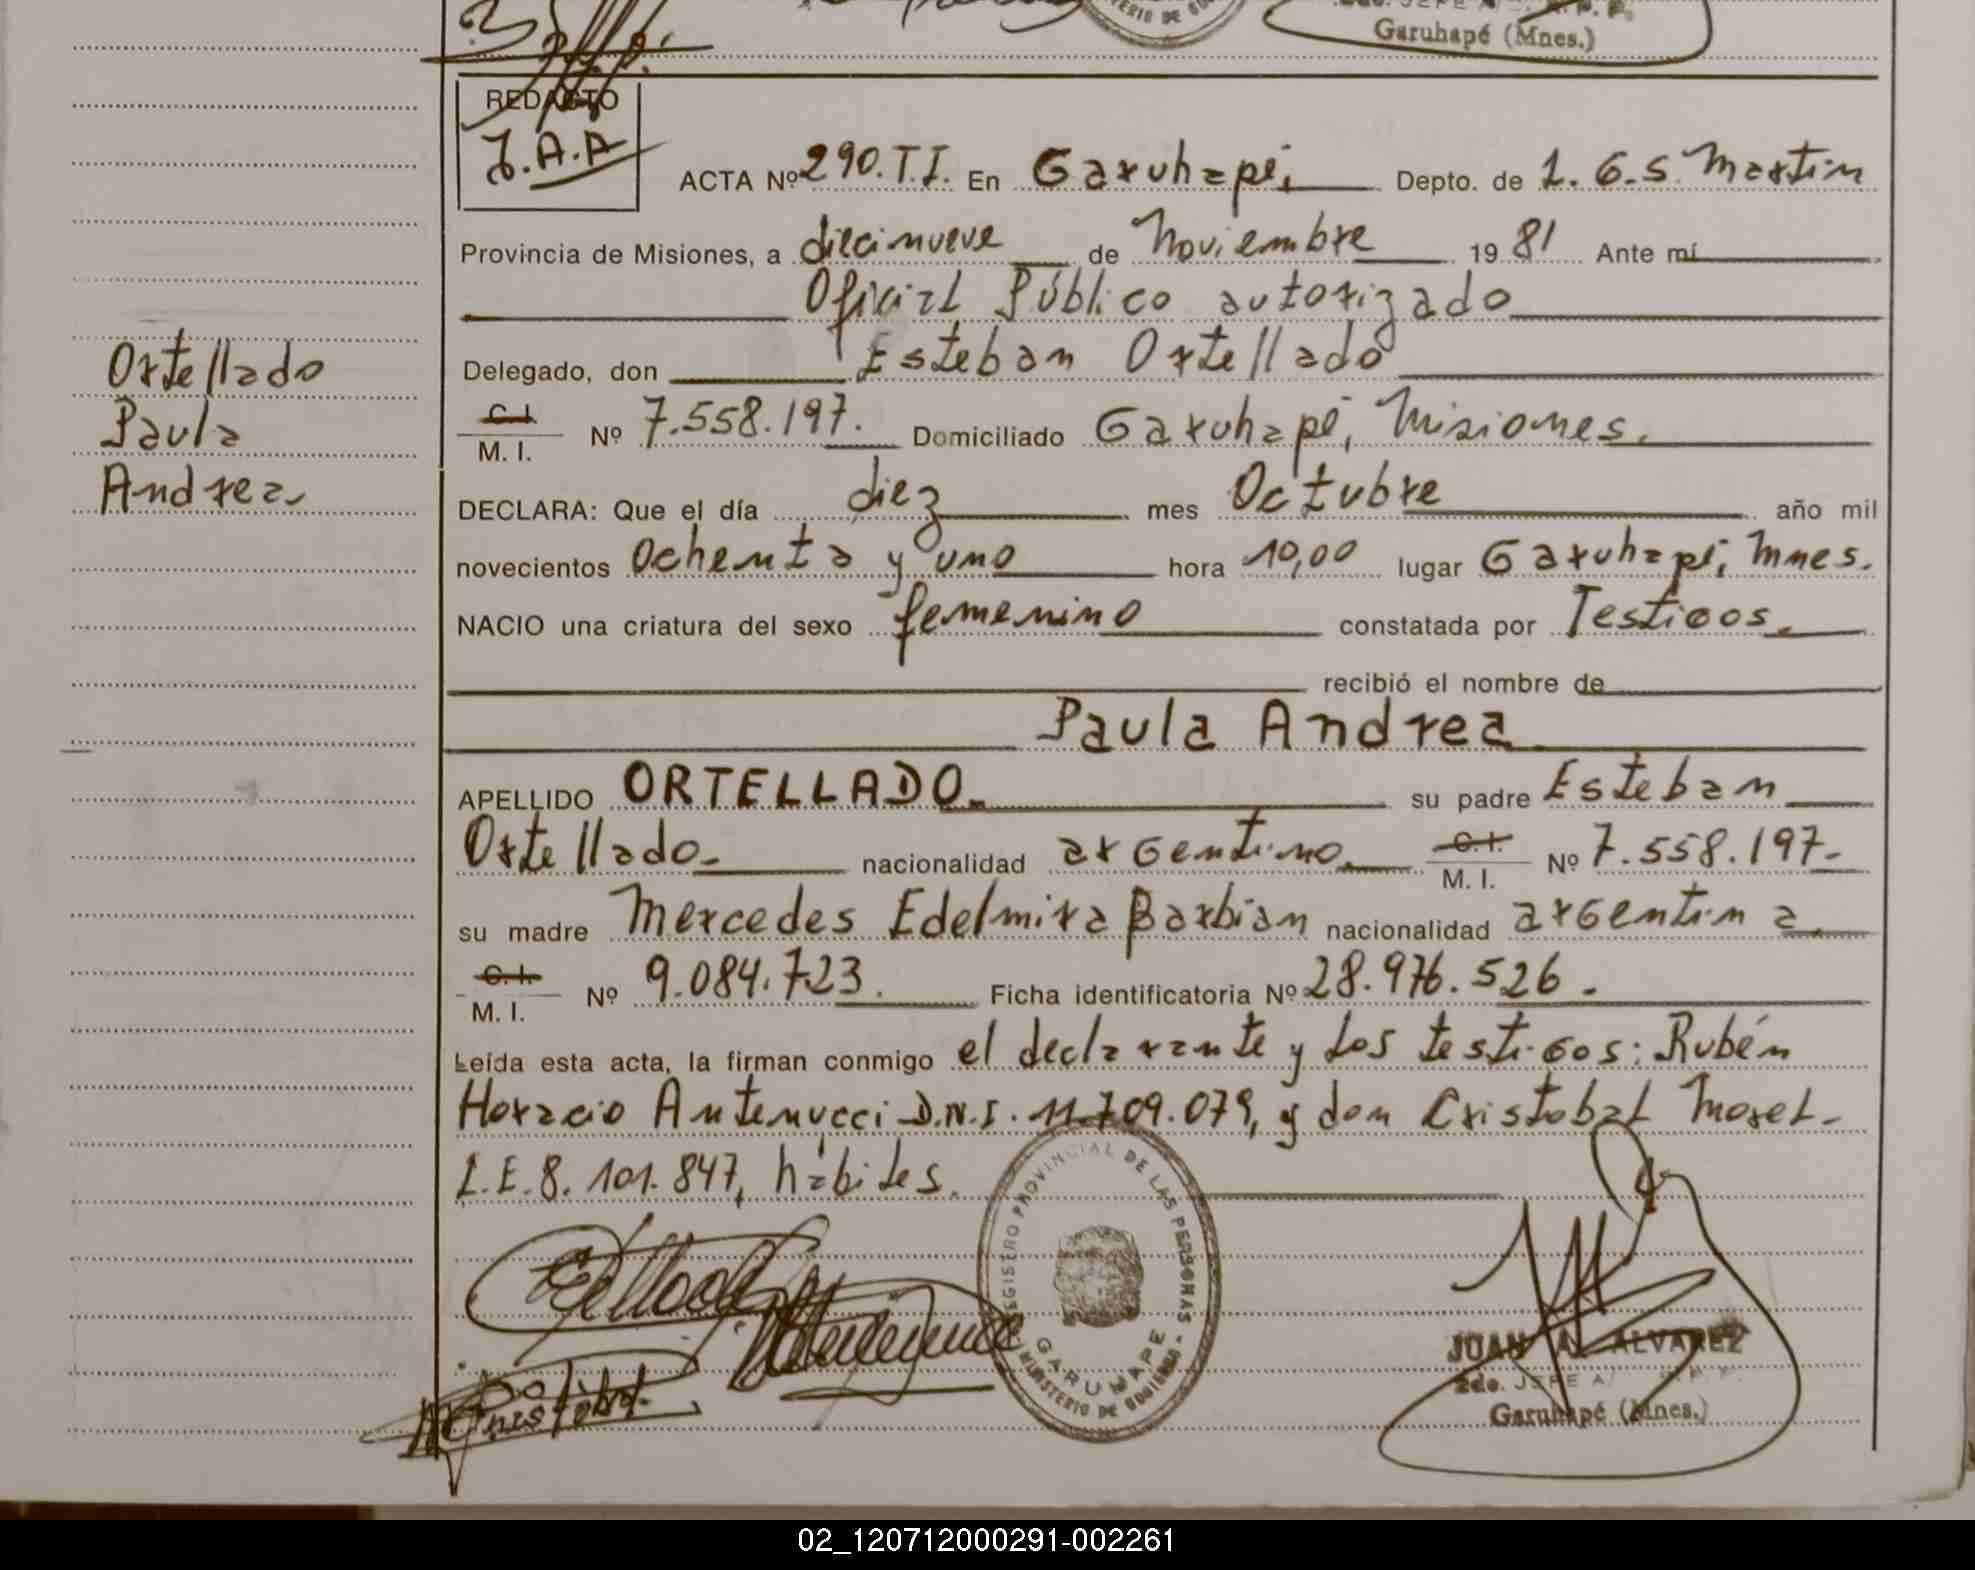 Garuhapé (Mnes.)
REDACTO
J.A.A
ACTA Nº 290.T.I. En Garuhapé, Depto. de L.G.S. Martin
Provincia de Misiones, a diecinueve de Noviembre 19 81 Ante mí
Oficial Público autorizado
Delegado, don Esteban Ortellado
C.I.
M. I. Nº 7.558.197. Domiciliado Garuhapé, Misiones.
Ortellado
Paula
Andrea
DECLARA: Que el día diez mes Octubre año mil
novecientos ochenta y uno hora 10,00 lugar Garuhapé, Mnes.
NACIO una criatura del sexo femenino constatada por Testigos.
recibió el nombre de
Paula Andrea
APELLIDO ORTELLADO. su padre Esteban
Ortellado. nacionalidad argentino. C.I. M. I. Nº 7.558.197-
su madre Mercedes Edelmira Barbian nacionalidad argentina
C.I.
M. I. Nº 9.084.723. Ficha identificatoria Nº 28.976.526.
Leída esta acta, la firman conmigo el declarante y los testigos: Rubén
Horacio Antenucci D.N.I. 11.709.079, y don Cristobal Morel-
L.E.8.101.847, hábiles.
REGISTRO PROVINCIAL DE LAS PERSONAS - MINISTERIO DE GOBIERNO
GARUHAPE
JUAN A. ALVAREZ
2do. JEFE
Garuhapé (Mnes.)
Cristobal
02_120712000291-002261